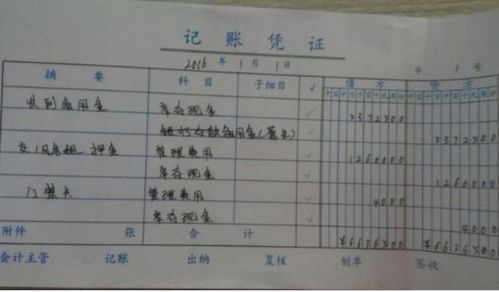 记账凭证
2016年1月1日 字1号
摘要 科目 子细目 √ 借方 贷方
千百十万千百十元角分 千百十万千百十元角分
收到备用金 库存现金 √ 5372500
备用金 5372500
交1月房租、押金 管理费用 1260000
库存现金 √ 1260000
门禁卡 管理费用 √ 4000
库存现金 √ 4000
附件 张 合计 ¥6636500 ¥6636500
会计主管 记账 出纳 复核 制单 签收